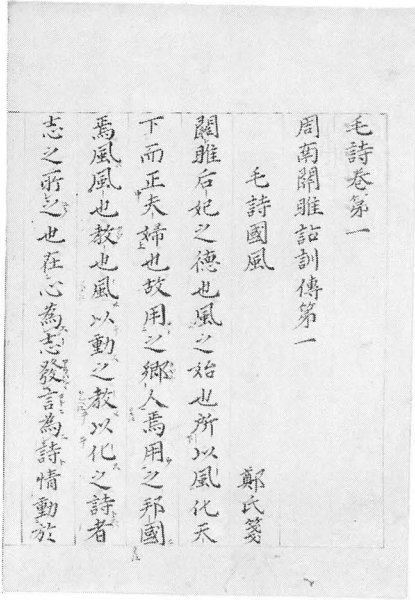 毛詩卷第一
周南關雎詁訓傳第一
毛詩國風 鄭氏箋
關雎后妃之德也風之始也所以風化天
下而正夫婦也故用之鄉人焉用之邦國
焉風風也教也風以動之教以化之詩者
志之所之也在心為志發言為詩情動於